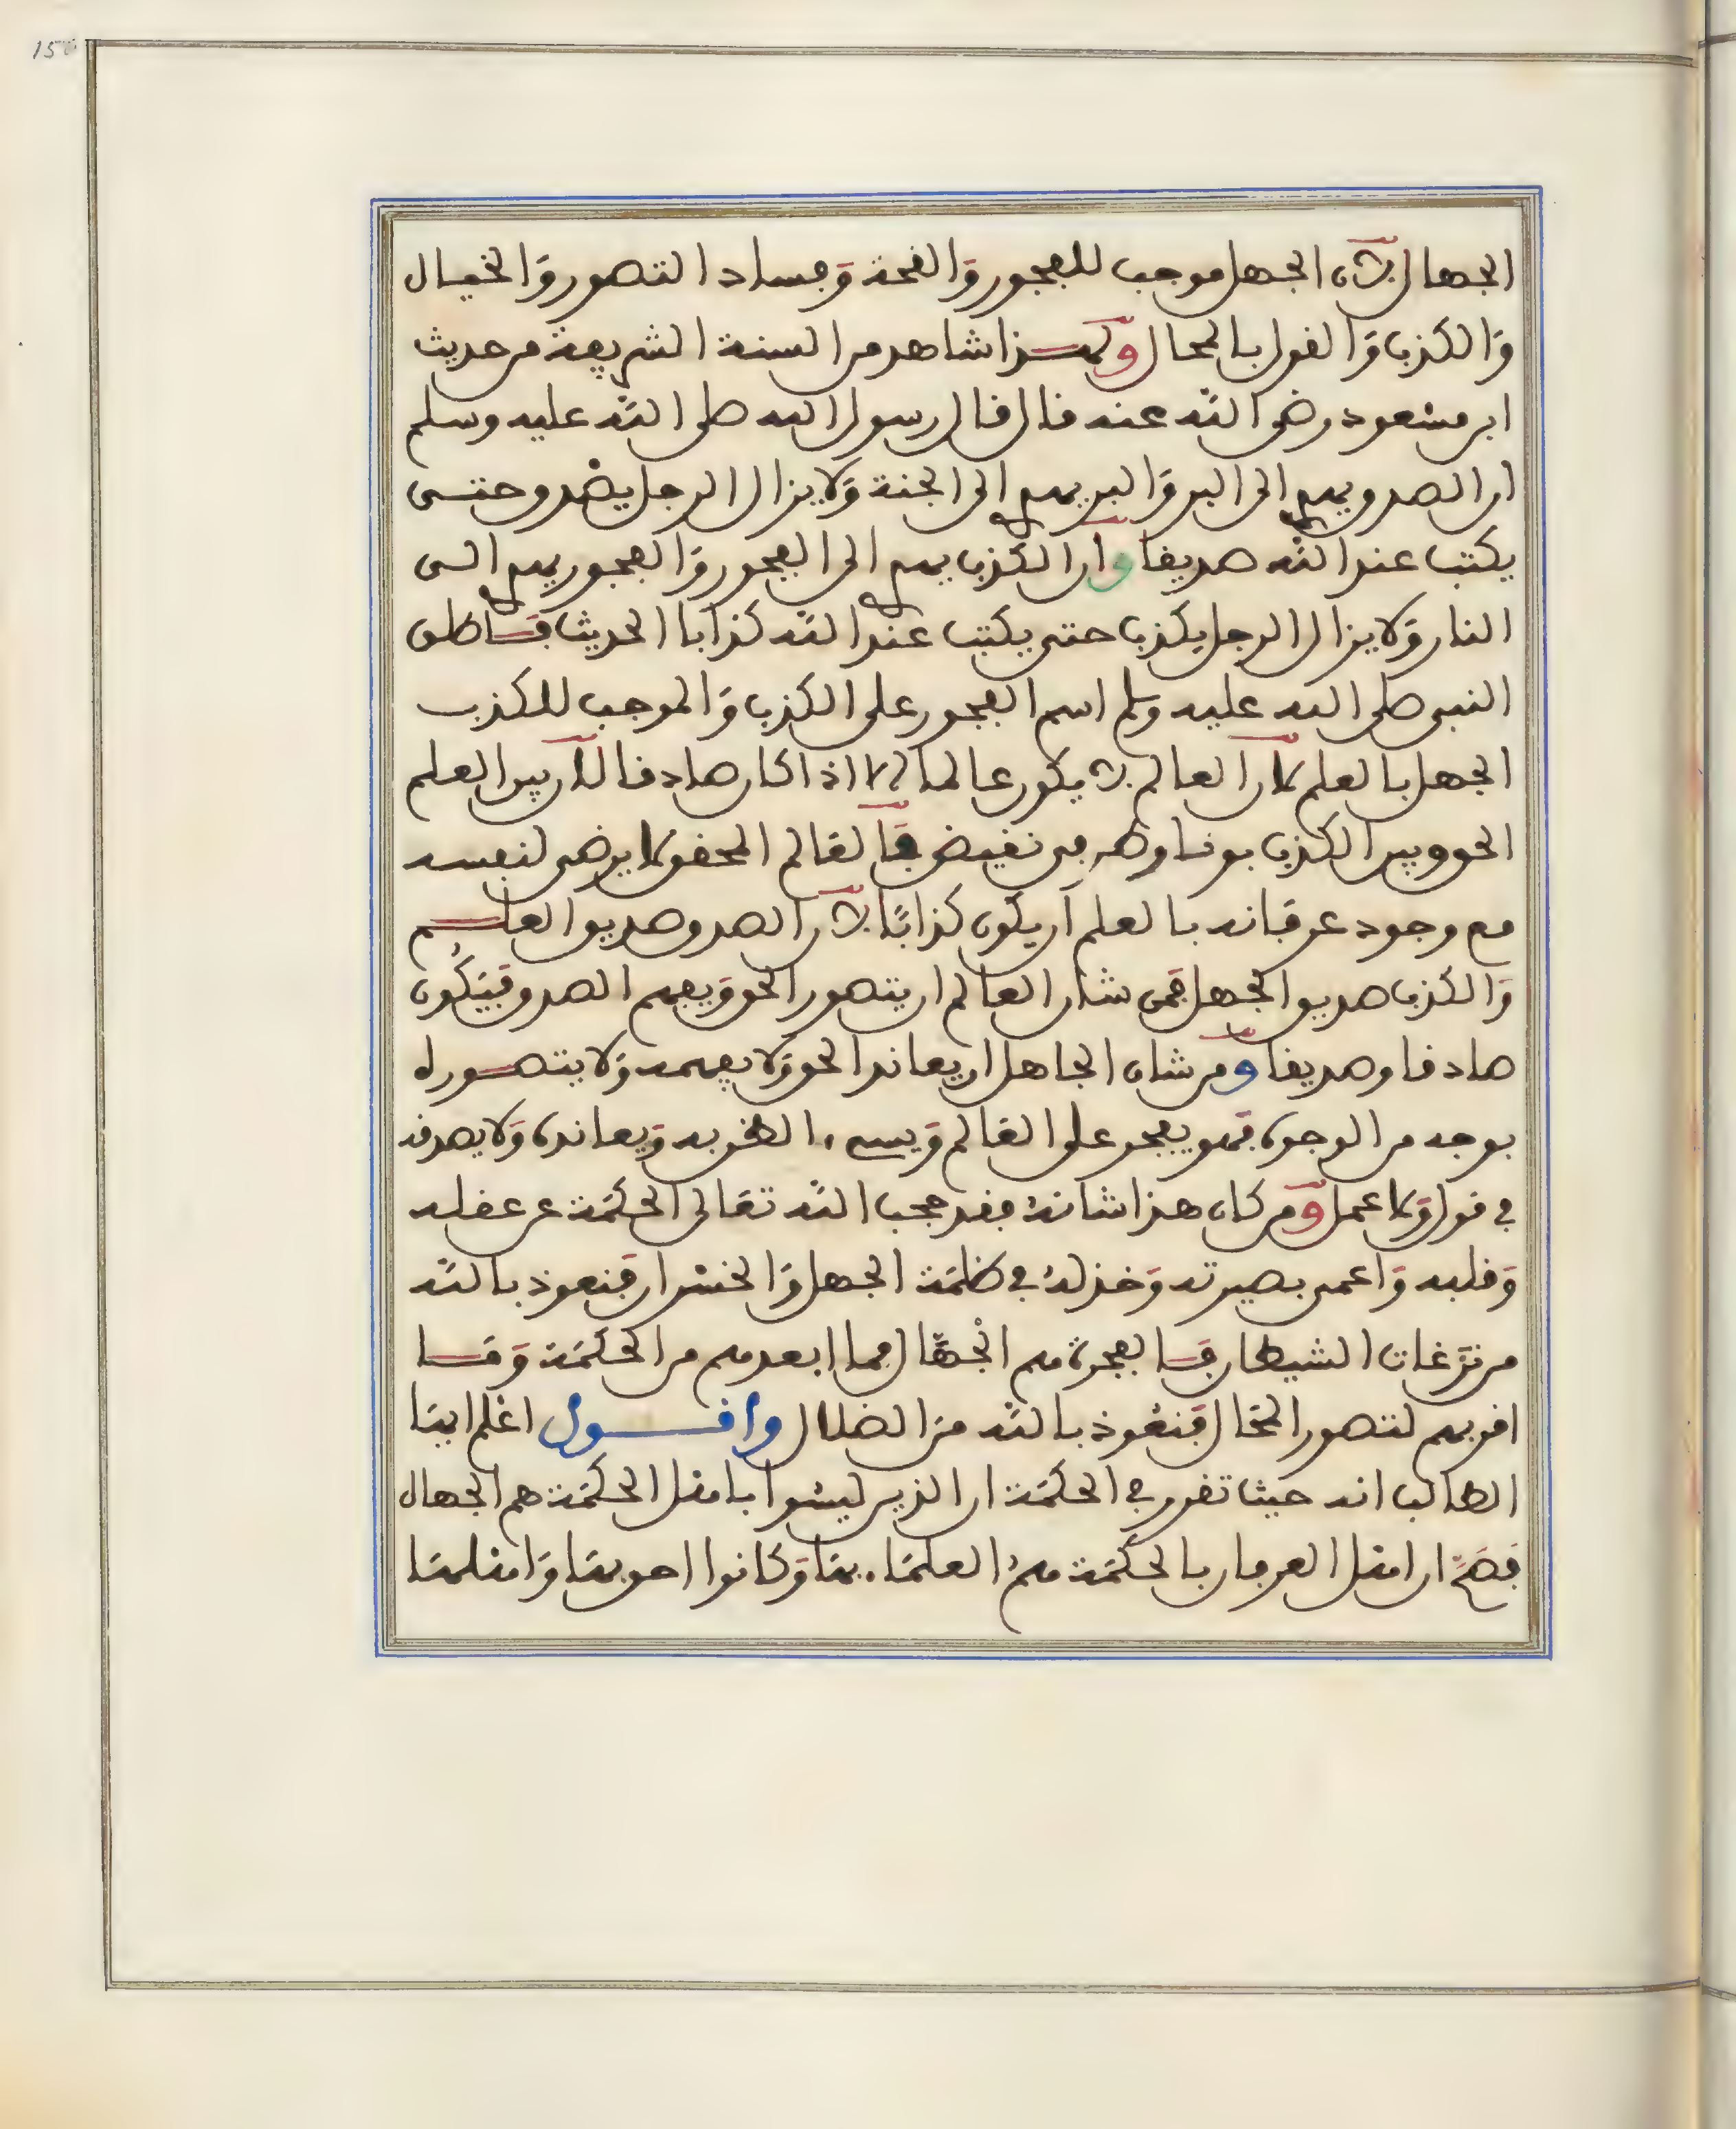 150
الجهال لان الجهل موجب للفجور والقحة وفساد التصور والخيال
والكذب والقول بالمحال ولهذا شاهد من السنة الشريفة من حديث
ابن مسعود رضى الله عنه قال قال رسول الله صلى الله عليه وسلم
ان الصدق يهدى الى البر والبر يهدى الى الجنة ولا يزال الرجل يصدق حتى
يكتب عند الله صديقا وان الكذب يهدى الى الفجور والفجور يهدى الى
النار ولا يزال الرجل يكذب حتى يكتب عند الله كذابا الحديث فاطلق
النبي صلى الله عليه وسلم اسم الفجور على الكذب والموجب للكذب
الجهل بالعلم لان العالم لا يكون عالما الا اذا كان صادقا لان بين العلم
الحق وبين الكذب بونا وطرفى نقيض فالعالم المحقق لا يرضى لنفسه
مع وجود عرفانه بالعلم ان يكون كذابا لان الصدق صديق العلم
والكذب صديق الجهل فمن شان العالم ان يتصور الحق ويفهم الصدق فيكون
صادقا وصديقا ومن شان الجاهل ان يعاند الحق ولا يفهمه ولا يتصوره
بوجه من الوجوه فهو يفجر على العالم ويسيء الظن به ويعانده ولا يصدقه
في قول ولا عمل ومن كان هذا شانه فقد حجب الله تعالى الحكمة عن عقله
وقلبه واعمى بصيرته وخذله في ظلمة الجهل والخسران فنعوذ بالله
من نزغات الشيطان فالفجرة هم الجهال فما ابعدهم من الحكمة وما
اقربهم لتصور المحال فنعوذ بالله من الضلال واقول اعلم ايها
الطالب انه حيث تقرر في الحكمة ان الذين ليسوا باهل الحكمة هم الجهال
فصح ان اهل العرفان بالحكمة هم العلماء بها وكانوا احق بها واهلها